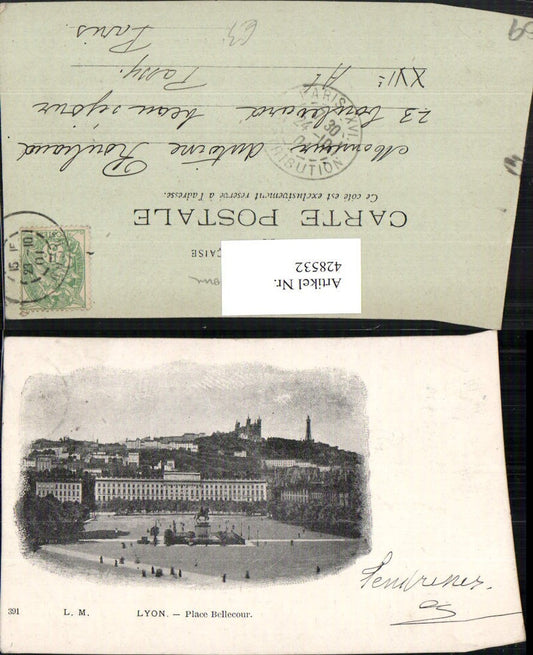 RÉPUBLIQUE FRANÇAISE
CARTE POSTALE
Ce côté est exclusivement réservé à l'adresse.
Monsieur Antoine
23 boulevard Beauséjour
XVIe Art
Passy.
Paris
PARIS XVI
DISTRIBUTION
Artikel Nr.
428532
Tendresses.
391 L. M. LYON. — Place Bellecour.